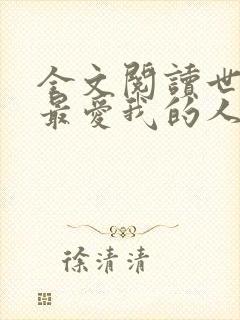 全文閱讀世
最愛我的人
徐清清